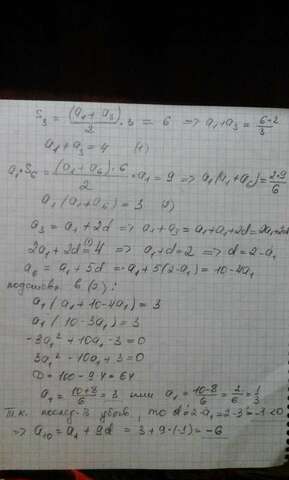 S₃ = (a₁ + a₃)/2 · 3 = 6 ⇒ a₁ + a₃ = 6·2/3
a₁ + a₃ = 4 (1)
a₁ · S₆ = (a₁ + a₆)·6/2 · a₁ = 9 ⇒ a₁(a₁ + a₆) = 2·9/6
a₁(a₁ + a₆) = 3 (2)
a₃ = a₁ + 2d ⇒ a₁ + a₃ = a₁ + a₁ + 2d = 2a₁ + 2d
2a₁ + 2d = 4 ⇒ a₁ + d = 2 ⇒ d = 2 - a₁
a₆ = a₁ + 5d = a₁ + 5(2 - a₁) = 10 - 4a₁
подставл в (2):
a₁(a₁ + 10 - 4a₁) = 3
a₁(10 - 3a₁) = 3
-3a₁² + 10a₁ - 3 = 0
3a₁² - 10a₁ + 3 = 0
D = 100 - 9·4 = 64
a₁ = (10+8)/6 = 3 или a₁ = (10-8)/6 = 2/6 = 1/3
Т.к. послед-ть убыв, то d = 2 - a₁ = 2 - 3 = -1 < 0
⇒ a₁₀ = a₁ + 9d = 3 + 9·(-1) = -6